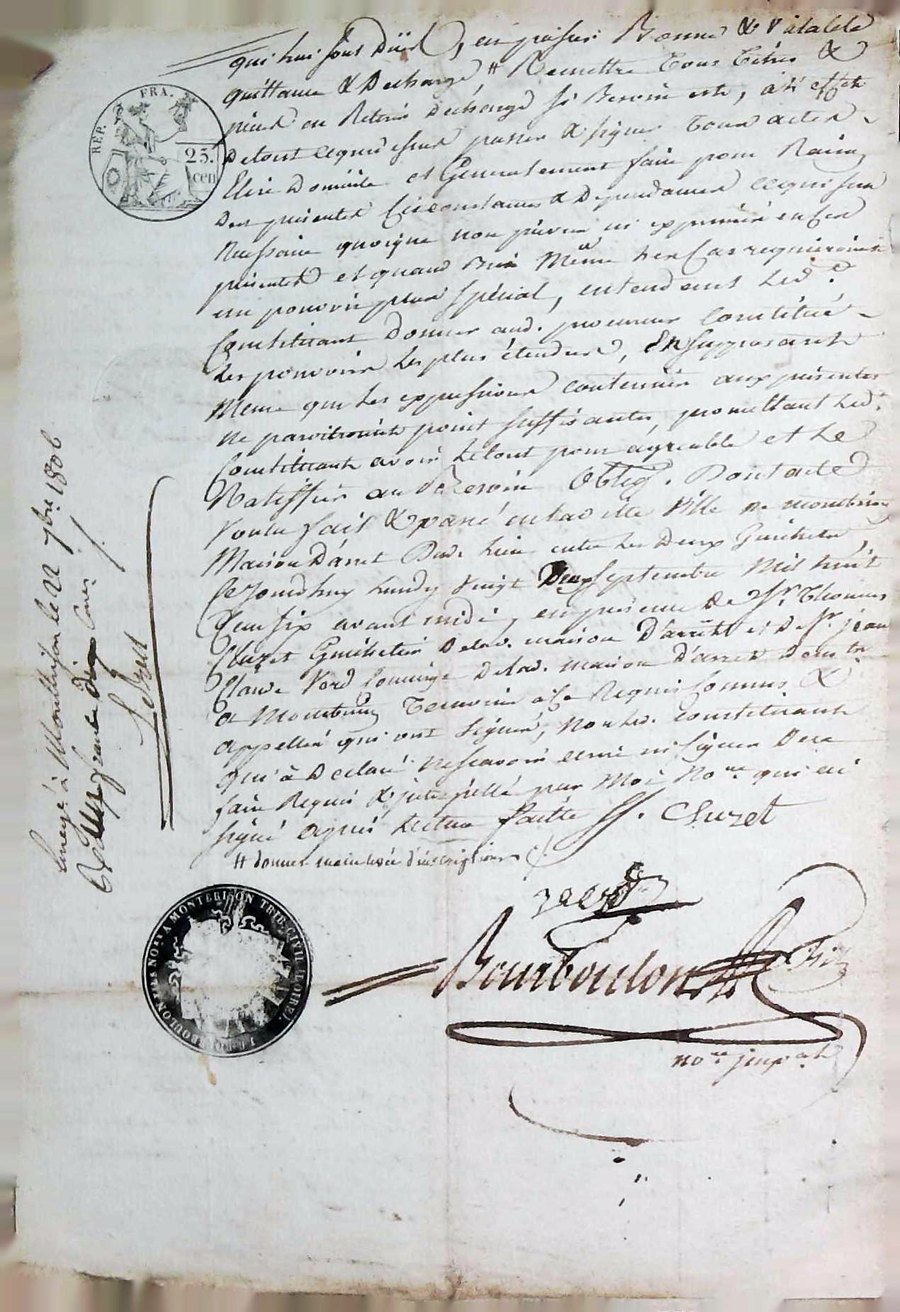 qui lui sont düs, en passer Bonne & Valable
quittance & Decharge # Remettre tous titres &
pieces en Retirer decharge si Besoin est, a l'effet
De tout ce que dessus passer & signer tous actes
Elire Domicile et Generalement faire pour Raison
Des presentes Circonstances & Dependances ce qui sera
Necessaire quoique non prévu ni exprimé en ces
presentes et quand Bien Même le cas requiereroit
un pouvoir plus spécial, entendent led.
Constituant Donner aud. procureur Constitué
les pouvoirs les plus étendus, En supposant
Même que les expressions contenues aux présentes
ne paroitroient point suffisantes, promettant led.
Constituant avoir le tout pour agreable et le
Ratiffier au Besoin Oblig. Dont acte
Voulu fait & passé en lad. Ville De montbrison
Maison Darret Dud. lieu entre les Deux Guichets,
Ce Jourdhuy lundy vingt Deux Septembre Mil huit
Cent six avant midi, en présence De Sr. Thomas
Cluzet Guichetier De lad. maison D'arrêt et De Sr. Jean
Claude Verd Concierge De lad. maison D'arret Demt.
a Montbrison Temoins a ce Requis Connus &
appellés qui ont signé, non led. constituant
Qui a Declaré ne scavoir ecrire ni signer De ce
faire Requis & interpellé par Moi Nore. qui ai
signé après lecture faitte // . Cluzet
# donner main levée d'inscriptions
Verd
Bourboulon
nore. jmpal.
REP. FRA.
25.
cen
Enregé. à Montbrison le 22 7bre 1806
Lebrun
BOURBOULON NOre. A MONTBRISON TRIB. CIVIL (LOIRE)